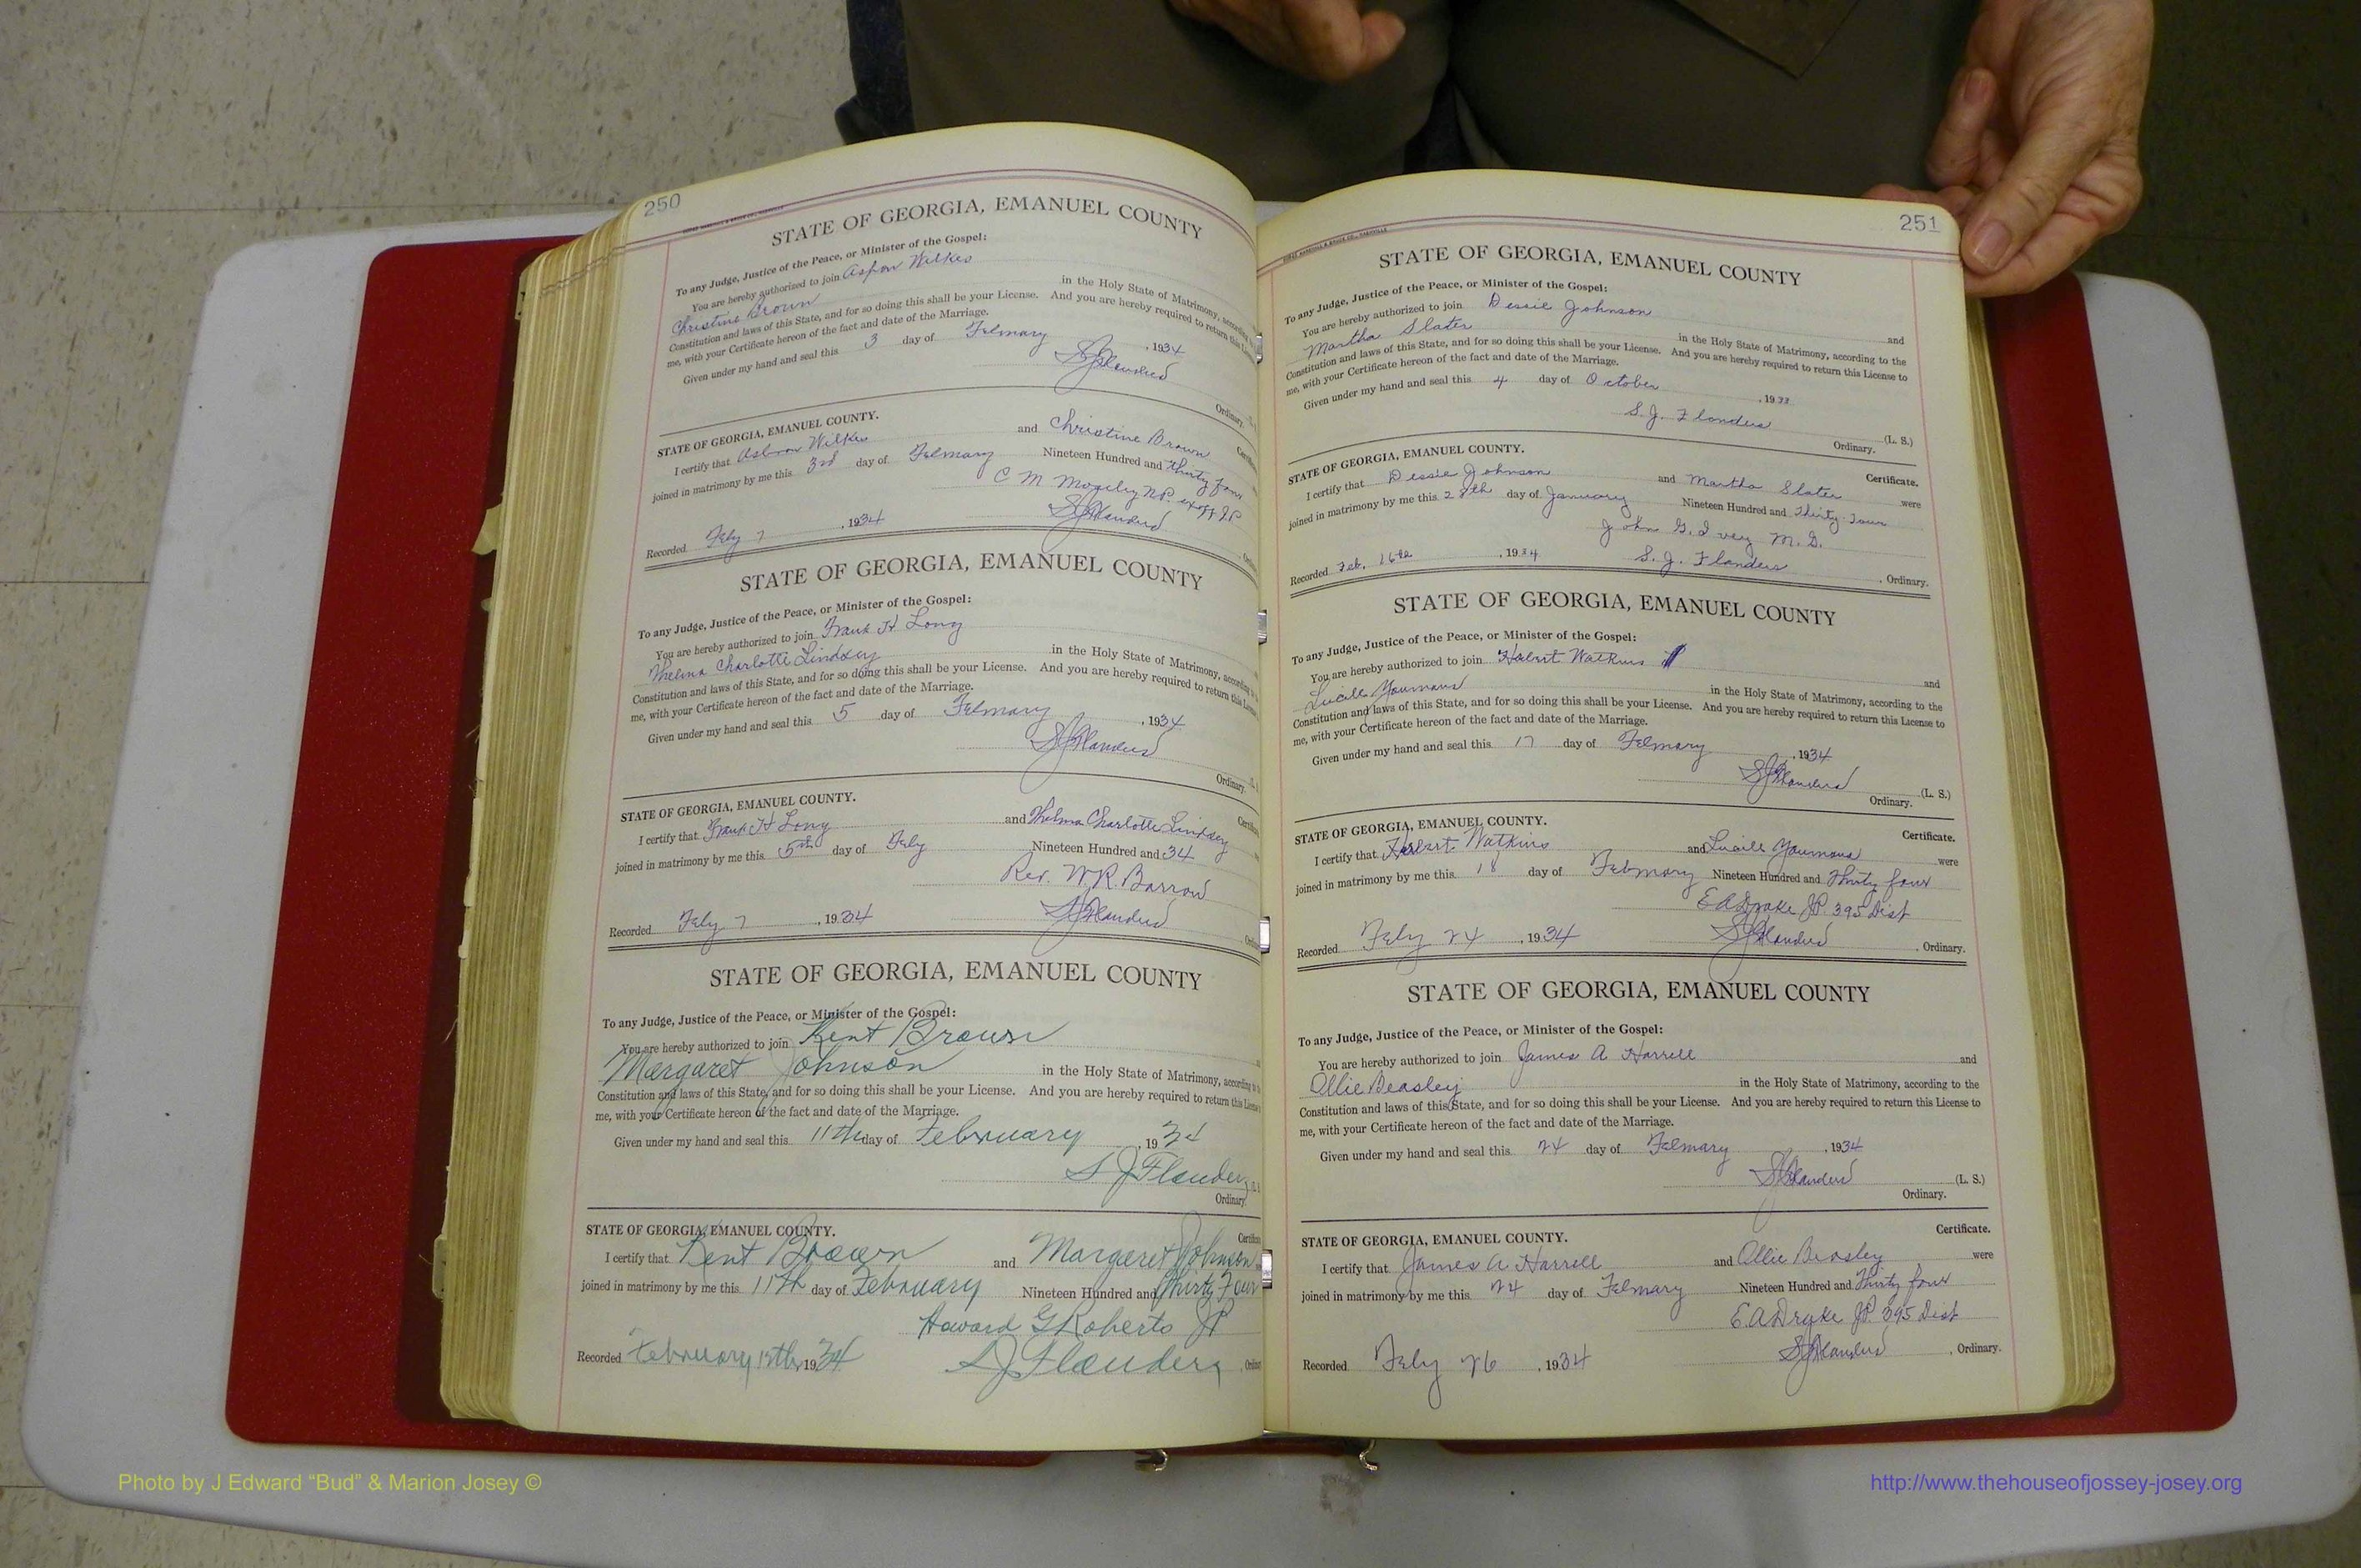 250
STATE OF GEORGIA, EMANUEL COUNTY
To any Judge, Justice of the Peace, or Minister of the Gospel:
You are hereby authorized to join Wilkes
Christine Brown in the Holy State of Matrimony, according
Constitution and laws of this State, and for so doing this shall be your License. And you are hereby required to return this
me, with your Certificate hereon of the fact and date of the Marriage.
Given under my hand and seal this 3 day of February, 1934
S J Flanders
Ordinary.
STATE OF GEORGIA, EMANUEL COUNTY.
I certify that Wilkes and Christine Brown
joined in matrimony by me this 3rd day of February Nineteen Hundred and thirty four
C M Mosely N.P. exoff J.P.
Recorded Feby 7, 1934 S J Flanders
STATE OF GEORGIA, EMANUEL COUNTY
To any Judge, Justice of the Peace, or Minister of the Gospel:
You are hereby authorized to join Frank H Long
Thelma Charlotte Lindsey in the Holy State of Matrimony, according
Constitution and laws of this State, and for so doing this shall be your License. And you are hereby required to return this License
me, with your Certificate hereon of the fact and date of the Marriage.
Given under my hand and seal this 5 day of February, 1934
S J Flanders
Ordinary.
STATE OF GEORGIA, EMANUEL COUNTY.
I certify that Frank H Long and Thelma Charlotte Lindsey
joined in matrimony by me this 5th day of Feby Nineteen Hundred and 34
Rev. W.R. Barrow
Recorded Feby 7, 1934 S J Flanders
STATE OF GEORGIA, EMANUEL COUNTY
To any Judge, Justice of the Peace, or Minister of the Gospel:
You are hereby authorized to join Kent Brown
Margaret Johnson in the Holy State of Matrimony, according to
Constitution and laws of this State, and for so doing this shall be your License. And you are hereby required to return this License
me, with your Certificate hereon of the fact and date of the Marriage.
Given under my hand and seal this 11th day of February, 1934
S J Flanders
Ordinary
STATE OF GEORGIA, EMANUEL COUNTY.
I certify that Kent Brown and Margaret Johnson
joined in matrimony by me this 11th day of February Nineteen Hundred and Thirty Four
Howard G Roberts JP
Recorded February 12th, 1934 S J Flanders
251
STATE OF GEORGIA, EMANUEL COUNTY
To any Judge, Justice of the Peace, or Minister of the Gospel:
You are hereby authorized to join Dessie Johnson and
Martha Slater in the Holy State of Matrimony, according to the
Constitution and laws of this State, and for so doing this shall be your License. And you are hereby required to return this License to
me, with your Certificate hereon of the fact and date of the Marriage.
Given under my hand and seal this 4 day of October, 1933
S. J. Flanders (L. S.)
Ordinary.
STATE OF GEORGIA, EMANUEL COUNTY. Certificate.
I certify that Dessie Johnson and Martha Slater were
joined in matrimony by me this 28th day of January Nineteen Hundred and Thirty-Four
John G. Ivey M. G.
Recorded Feb. 16th, 1934 S. J. Flanders, Ordinary.
STATE OF GEORGIA, EMANUEL COUNTY
To any Judge, Justice of the Peace, or Minister of the Gospel:
You are hereby authorized to join Watkins and
Lucille Youmans in the Holy State of Matrimony, according to the
Constitution and laws of this State, and for so doing this shall be your License. And you are hereby required to return this License to
me, with your Certificate hereon of the fact and date of the Marriage.
Given under my hand and seal this 17 day of February, 1934
S J Flanders (L. S.)
Ordinary.
STATE OF GEORGIA, EMANUEL COUNTY. Certificate.
I certify that Watkins and Lucille Youmans were
joined in matrimony by me this 18 day of February Nineteen Hundred and Thirty four
E A Drake J.P. 395 Dist
Recorded Feby 24, 1934 S J Flanders, Ordinary.
STATE OF GEORGIA, EMANUEL COUNTY
To any Judge, Justice of the Peace, or Minister of the Gospel:
You are hereby authorized to join James A Harrell and
Ollie Beasley in the Holy State of Matrimony, according to the
Constitution and laws of this State, and for so doing this shall be your License. And you are hereby required to return this License to
me, with your Certificate hereon of the fact and date of the Marriage.
Given under my hand and seal this 24 day of February, 1934
S J Flanders (L. S.)
Ordinary.
STATE OF GEORGIA, EMANUEL COUNTY. Certificate.
I certify that James A Harrell and Ollie Beasley were
joined in matrimony by me this 24 day of February Nineteen Hundred and Thirty four
E. A Drake J.P. 395 Dist
Recorded Feby 26, 1934 S J Flanders, Ordinary.
Photo by J Edward “Bud” & Marion Josey ©
http://www.thehouseofjossey-josey.org